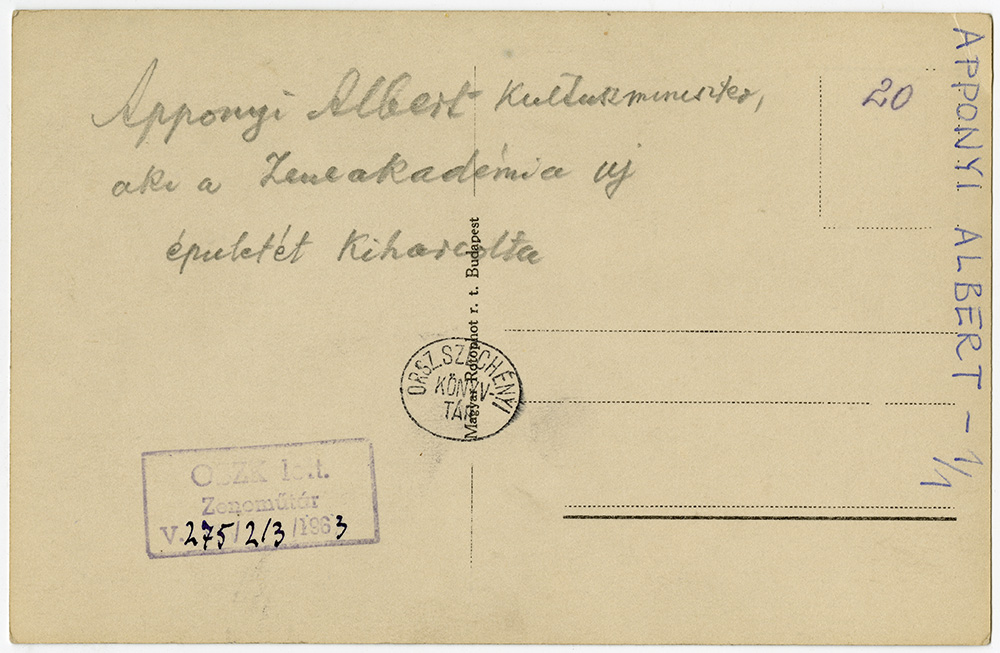 Apponyi Albert Kultuszminiszter,
aki a Zeneakadémia uj
épületét Kiharcolta
20
APPONYI ALBERT - 1/1
Magyar Rotophot r. t. Budapest
ORSZ. SZÉCHÉNYI
KÖNYV-
TÁR
OSZK lelt.
Zeneműtár
V. 275/213/1963